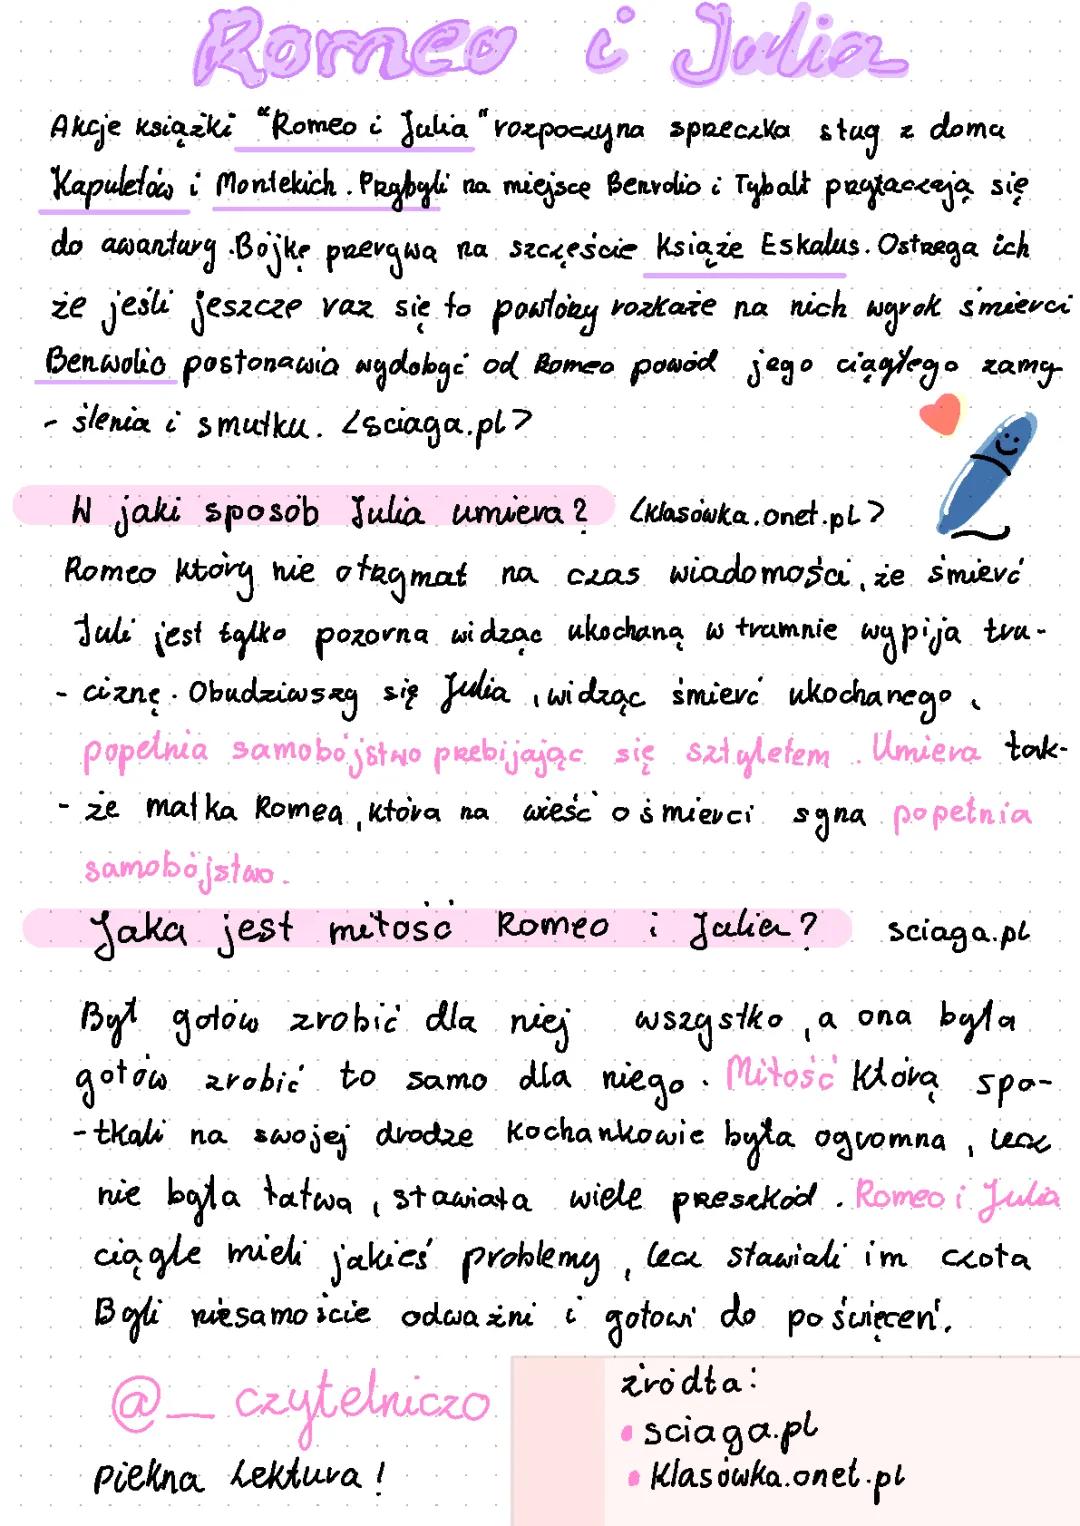 Romeo i Julia
Akcje książki "Romeo i Julia" rozpoczyna sprzeczka sług z domu
Kapuletów i Montekich. Przybyli na miejsce Benvolio i Tybalt przyłączają się
do awantury. Bójkę przerywa na szczęście Książe Eskalus. Ostrzega ich
że jeśli jeszcze raz się to powtórzy rozkaże na nich wyrok śmierci
Benwolio postonawia wydobyć od Romeo powód jego ciągłego zamy-
- ślenia i smutku. <sciaga.pl>
W jaki sposób Julia umiera? <klasówka.onet.pl>
Romeo który nie otrzymał na czas wiadomości, że śmierć
Juli jest tylko pozorna widząc ukochaną w trumnie wypija tru-
- ciznę. Obudziwszy się Julia, widząc śmierć ukochanego,
popełnia samobójstwo przebijając się sztyletem. Umiera tak-
- że matka Romea, która na wieść o śmierci syna popełnia
samobójstwo.
Jaka jest miłość Romeo i Julia? sciaga.pl
Był gotów zrobić dla niej wszystko, a ona była
gotów zrobić to samo dla niego. Miłość którą spo-
- tkali na swojej drodze kochankowie była ogromna, lecz
nie była łatwa, stawiała wiele przeszkód. Romeo i Julia
ciągle mieli jakieś problemy, lecz stawiali im czoła
Byli niesamoicie odważni i gotowi do poświęceń.
@_czytelniczo
piękna lektura!
źródła:
sciaga.pl
klasówka.onet.pl